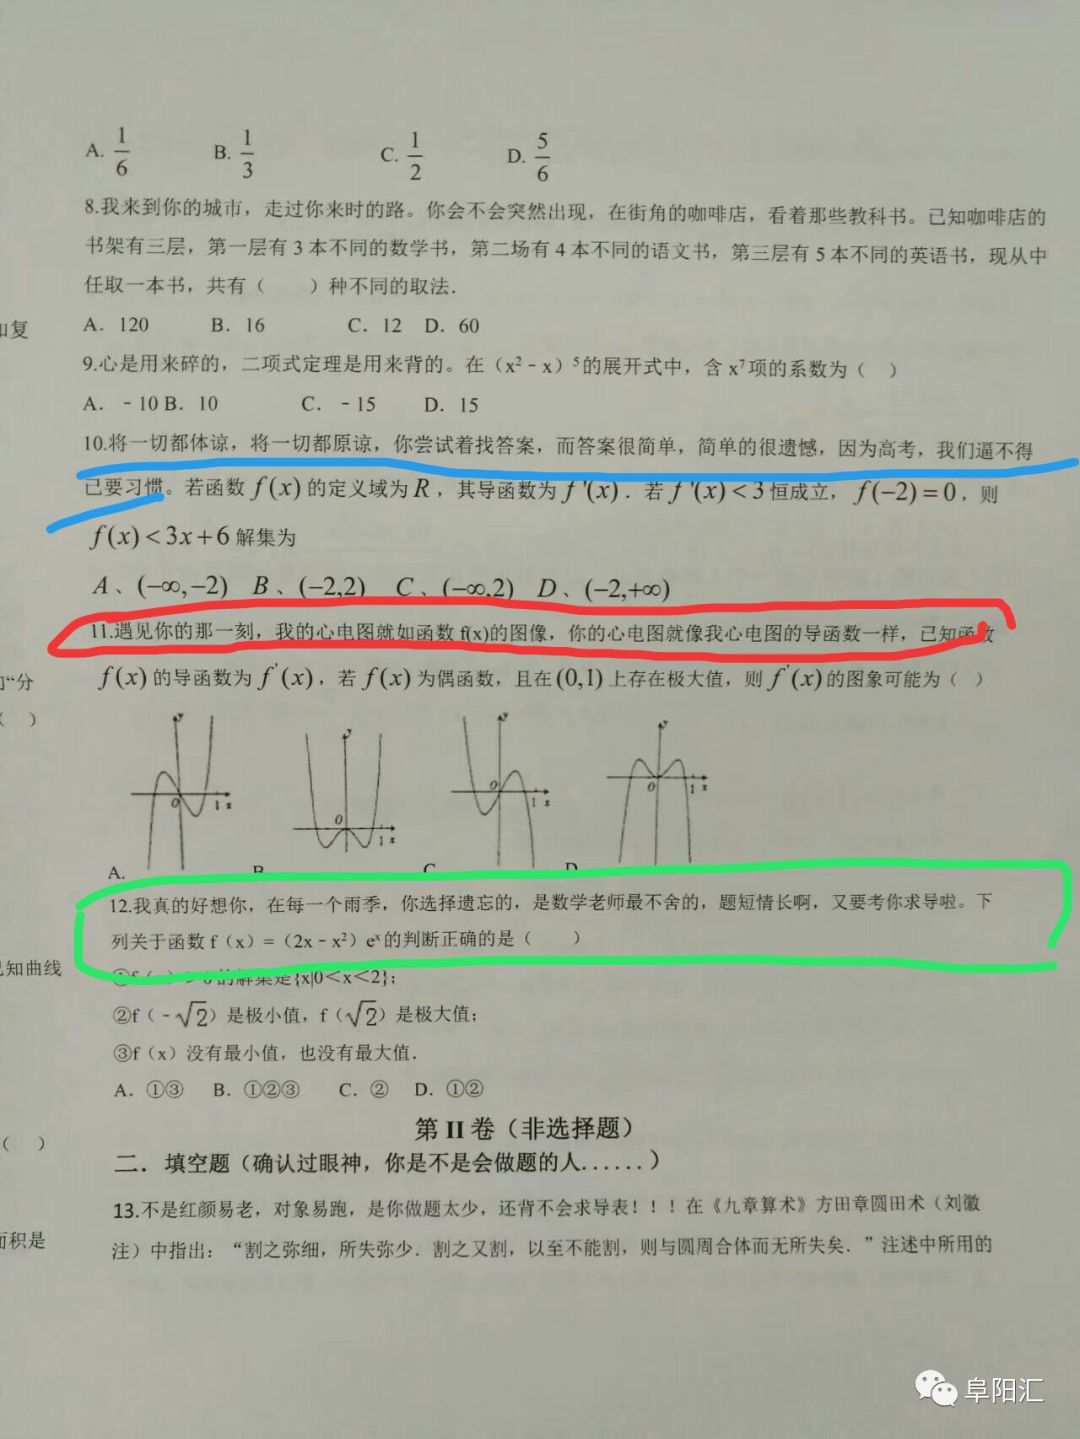 A. 1/6 B. 1/3 C. 1/2 D. 5/6
8.我来到你的城市，走过你来时的路。你会不会突然出现，在街角的咖啡店，看着那些教科书。已知咖啡店的
书架有三层，第一层有 3 本不同的数学书，第二场有 4 本不同的语文书，第三层有 5 本不同的英语书，现从中
任取一本书，共有（ ）种不同的取法．
如复
A．120 B．16 C．12 D．60
9.心是用来碎的，二项式定理是用来背的。在（x²﹣x）⁵的展开式中，含 x⁷项的系数为（ ）
A．﹣10 B．10 C．﹣15 D．15
10.将一切都体谅，将一切都原谅，你尝试着找答案，而答案很简单，简单的很遗憾，因为高考，我们逼不得
已要习惯。若函数 f(x) 的定义域为 R，其导函数为 f '(x)．若 f '(x)<3 恒成立，f(−2)=0，则
f(x)<3x+6 解集为
A、(−∞,−2) B、(−2,2) C、(−∞,2) D、(−2,+∞)
11.遇见你的那一刻，我的心电图就如函数 f(x)的图像，你的心电图就像我心电图的导函数一样，已知函数
“分
f(x) 的导函数为 f'(x)，若 f(x) 为偶函数，且在 (0,1) 上存在极大值，则 f'(x) 的图象可能为（ ）
（ ）
y y y y
0 1 x 0 1 x 0 1 x 0 1 x
A. B. C. D.
12.我真的好想你，在每一个雨季，你选择遗忘的，是数学老师最不舍的，题短情长啊，又要考你求导啦。下
列关于函数 f（x）=（2x﹣x²）eˣ的判断正确的是（ ）
知曲线
①f（x）>0 的解集是{x|0＜x＜2}；
②f（﹣√2）是极小值，f（√2）是极大值；
③f（x）没有最小值，也没有最大值．
A．①③ B．①②③ C．② D．①②
第 II 卷（非选择题）
（ ）
二．填空题（确认过眼神，你是不是会做题的人......）
13.不是红颜易老，对象易跑，是你做题太少，还背不会求导表！！！在《九章算术》方田章圆田术（刘徽
面积是
注）中指出：“割之弥细，所失弥少．割之又割，以至不能割，则与圆周合体而无所失矣．”注述中所用的
阜阳汇